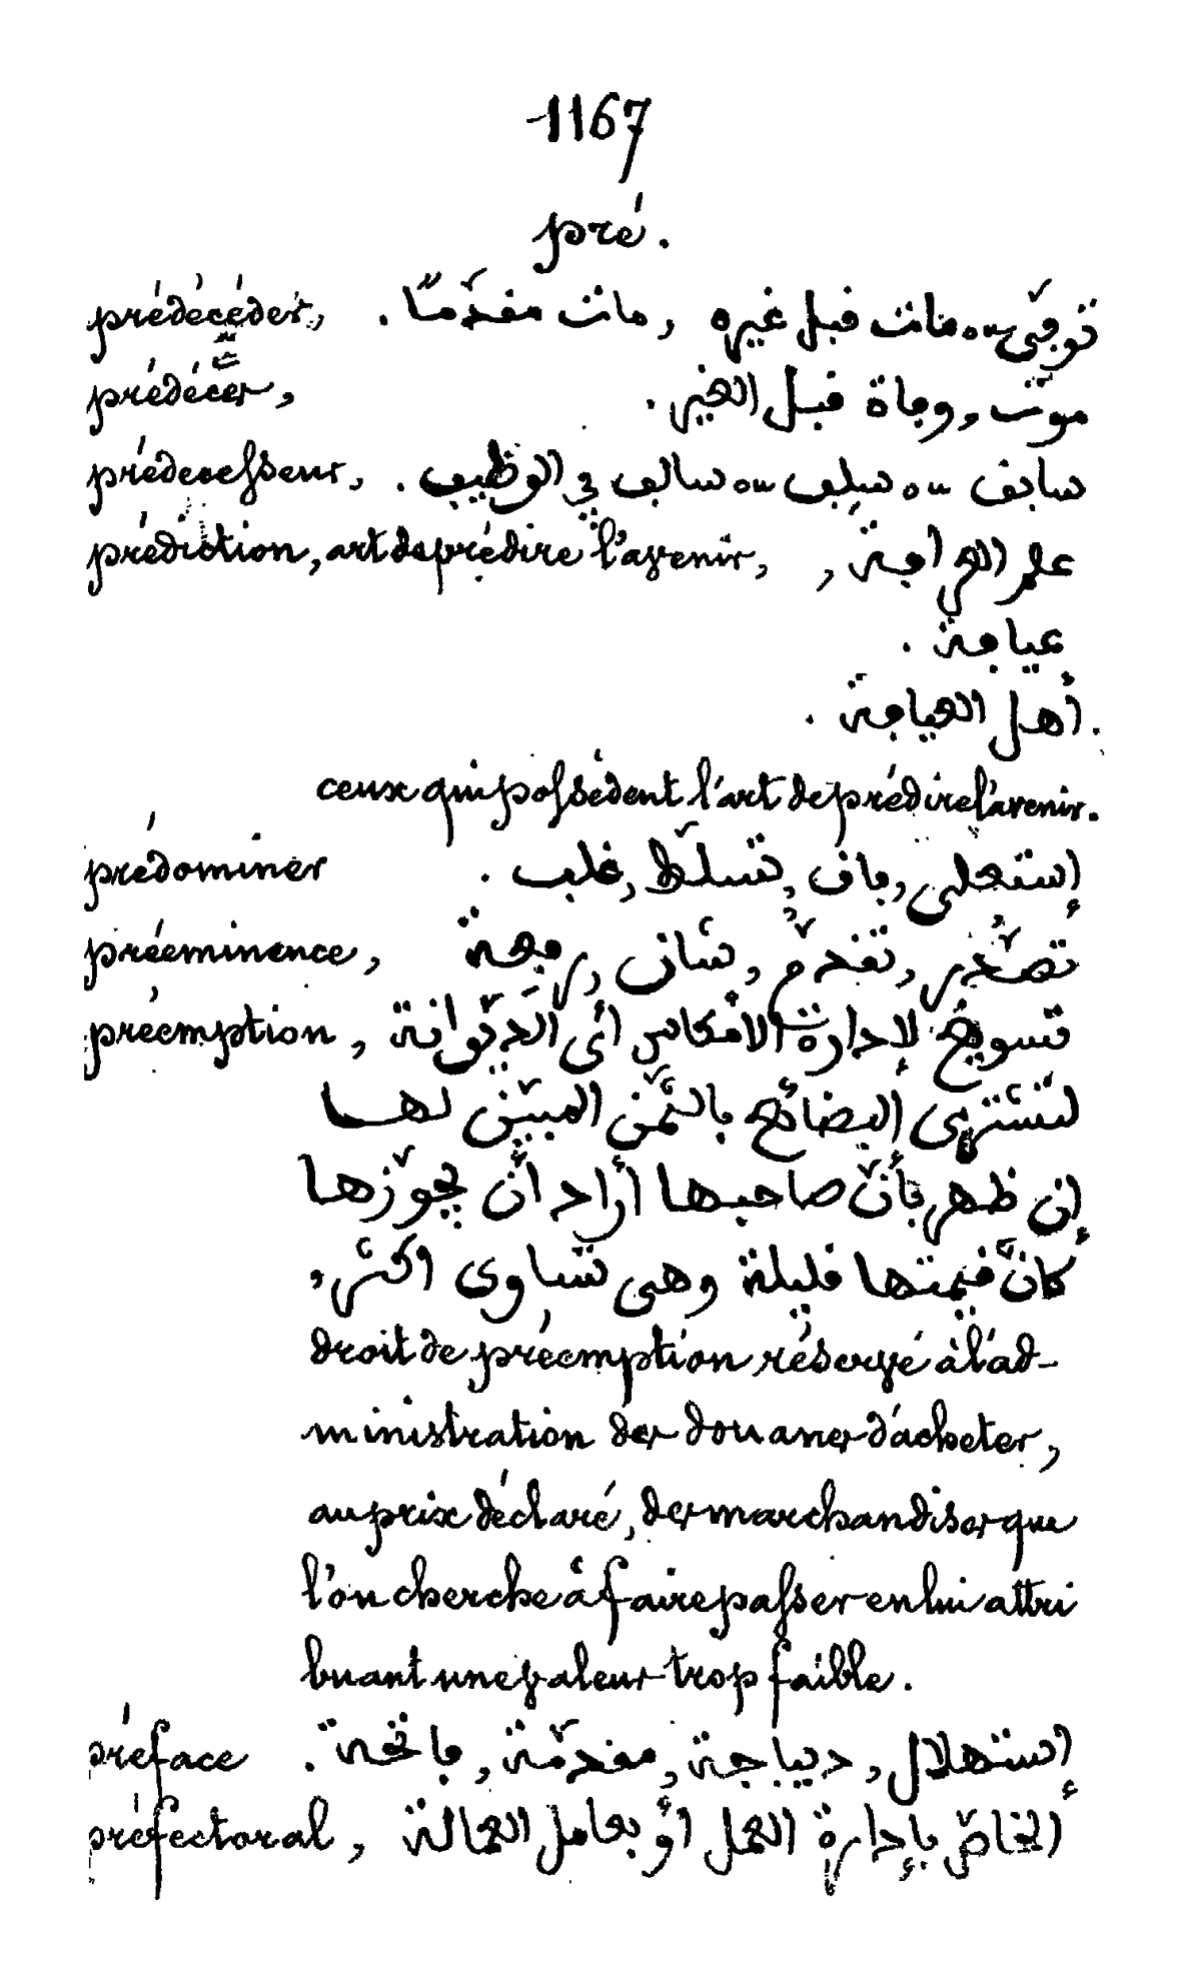 1167
pré.
prédécéder, توفّى ـ مات قبل غيره, مات مقدّمًا.
prédécès, موت, وفاة قبل الغير.
prédécesseur, سابق ـ سلف ـ سالف في الوظيف.
prédiction, art de prédire l'avenir, علم العرافة,
عيافة.
أهل العيافة.
ceux qui possèdent l'art de prédire l'avenir.
prédominer إستعلى, فاق, تسلّط, غلب.
prééminence, تصدّر, تقدّم, شان, رفعة
préemption, تسويغ لإدارة الامكاس أي الديوانة
لتشتري البضائع بالثمن المبيّن لها
إن ظهر بأنّ صاحبها أراد أن يجوّزها
كأنّ قيمتها قليلة وهى تساوى اكثر,
droit de préemption réservé à l'ad-
ministration des douanes d'acheter,
au prix déclaré, des marchandises que
l'on cherche à faire passer en lui attri
buant une valeur trop faible.
préface إستهلال, ديباجة, مقدّمة, فاتحة.
préfectoral, الخاصّ بإدارة العمل أو بعامل العمالة